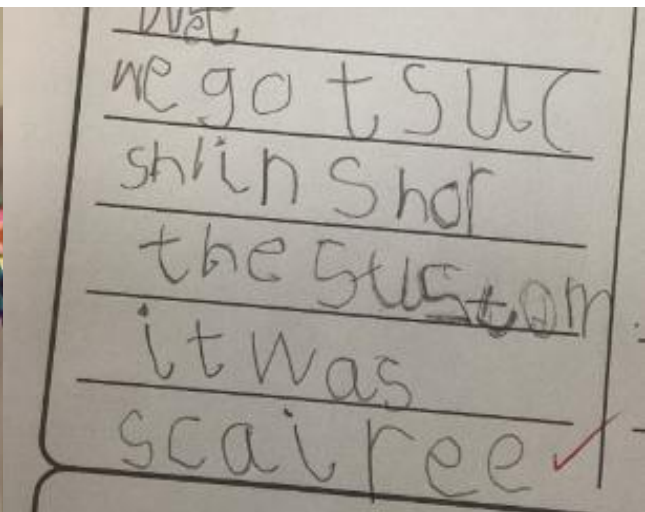 we got suc
sh in shor
the sustom
it was
scairee